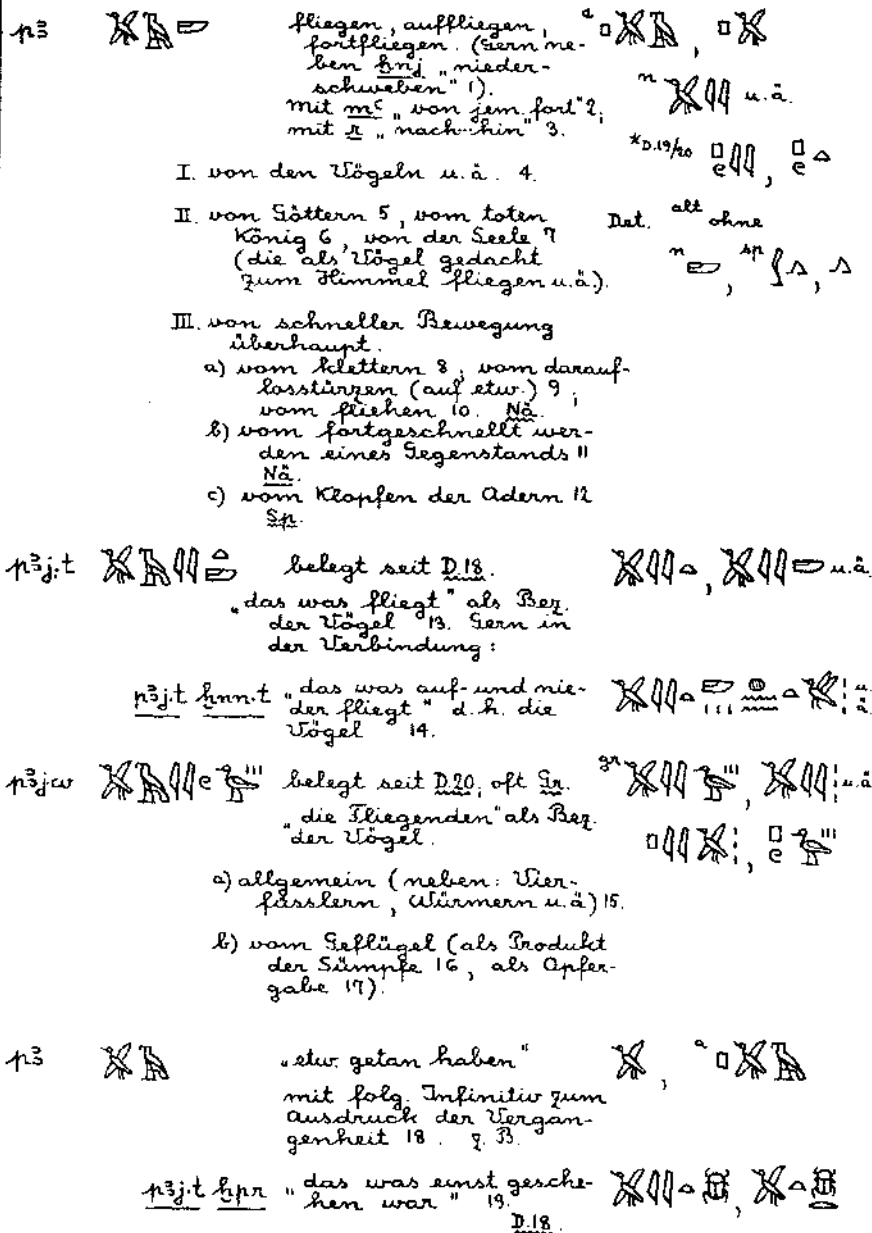 pꜣ 𓅮𓄿𓂭 fliegen, auffliegen, a 𓊪𓅮𓄿, 𓊪𓅮
fortfliegen. (Gern ne-
ben ẖnj „nieder-
schweben" 1). n 𓅮𓇋𓇋 u.ä.
mit mꜥ „von jem. fort" 2;
mit r „nach-hin" 3.
*D.19/20
I. von den Vögeln u.ä. 4.
II. von Göttern 5, vom toten Det. alt ohne
König 6, von der Seele 7
(die als Vögel gedacht n , sp
zum Himmel fliegen u.ä).
III. von schneller Bewegung
überhaupt.
a) vom klettern 8, vom darauf-
losstürzen (auf etw.) 9;
vom fliehen 10. Nä.
b) vom fortgeschnellt wer-
den eines Gegenstands 11
Nä.
c) vom Klopfen der Adern 12
Sp.
pꜣj.t belegt seit D.18. u.ä.
„das was fliegt" als Bez.
der Vögel 13. Gern in
der Verbindung:
pꜣj.t ẖnn.t „das was auf- und nie- u.ä.
der fliegt" d.h. die
Vögel 14.
pꜣjw belegt seit D.20; oft Gr. gr u.ä
„die Fliegenden" als Bez.
der Vögel.
a) allgemein (neben: Vier-
füsslern, Würmern u.ä) 15.
b) vom Geflügel (als Produkt
der Sümpfe 16, als Opfer-
gabe 17).
pꜣ 𓅮𓄿 „etw. getan haben" 𓅮, a 𓊪𓅮𓄿
mit folg. Infinitiv zum
Ausdruck der Vergan-
genheit 18. z.B.
pꜣj.t ḫpr „das was einst gesche- 𓅮𓇋𓇋𓏏𓆣, 𓅮𓏏𓆣𓂋
hen war" 19.
D.18.